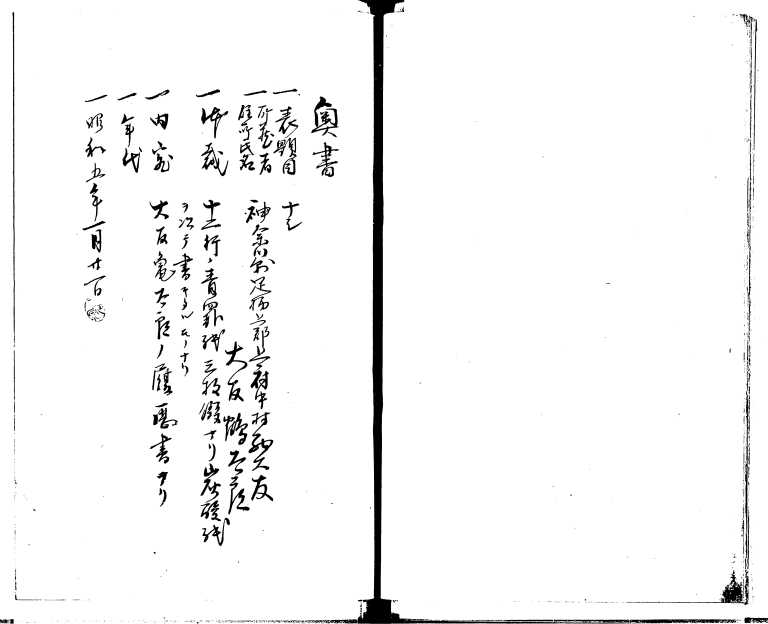 奥書
一表題目 ナシ
一所蔵者
住所氏名 神奈川縣足柄上郡上府中村
大友
一体裁 十二行ノ青罫紙三枚綴ナリ炭酸紙
ヲ以テ書キタルモノナリ
一内容 大友亀太郎ノ履歴書ナリ
一年代
一昭和五年一月廿一日